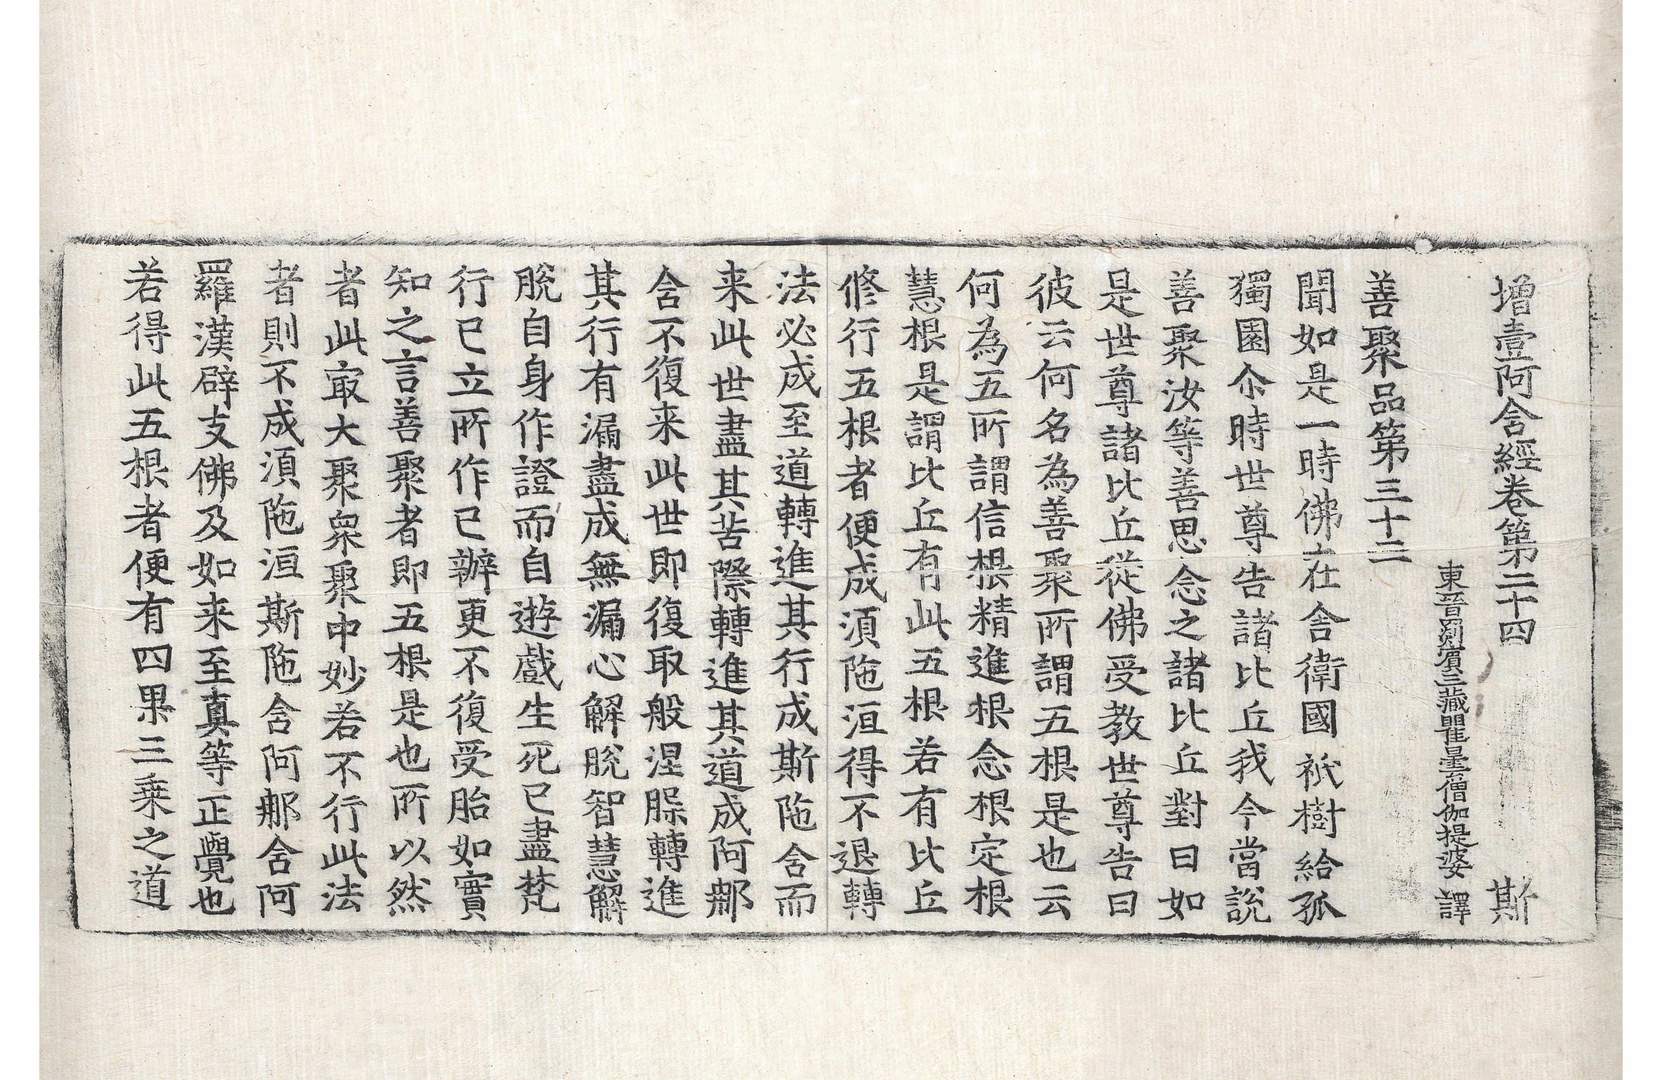 增壹阿含經卷第二十四 斯
東晉罽賓三藏瞿曇僧伽提婆 譯
善聚品第三十二
聞如是一時佛在舍衛國祇樹給孤
獨園尒時世尊告諸比丘我今當說
善聚汝等善思念之諸比丘對曰如
是世尊諸比丘從佛受教世尊告曰
彼云何名為善聚所謂五根是也云
何為五所謂信根精進根念根定根
慧根是謂比丘有此五根若有比丘
修行五根者便成湏陁洹得不退轉
法必成至道轉進其行成斯陁含而
来此世盡其苦際轉進其道成阿那
含不復来此世即復取般涅槃轉進
其行有漏盡成無漏心解脫智慧解
脫自身作證而自遊戲生死已盡梵
行已立所作已辦更不復受胎如實
知之言善聚者即五根是也所以然
者此㝡大聚衆聚中妙若不行此法
者則不成湏陁洹斯陁含阿那含阿
羅漢辟支佛及如来至真等正覺也
若得此五根者便有四果三乗之道